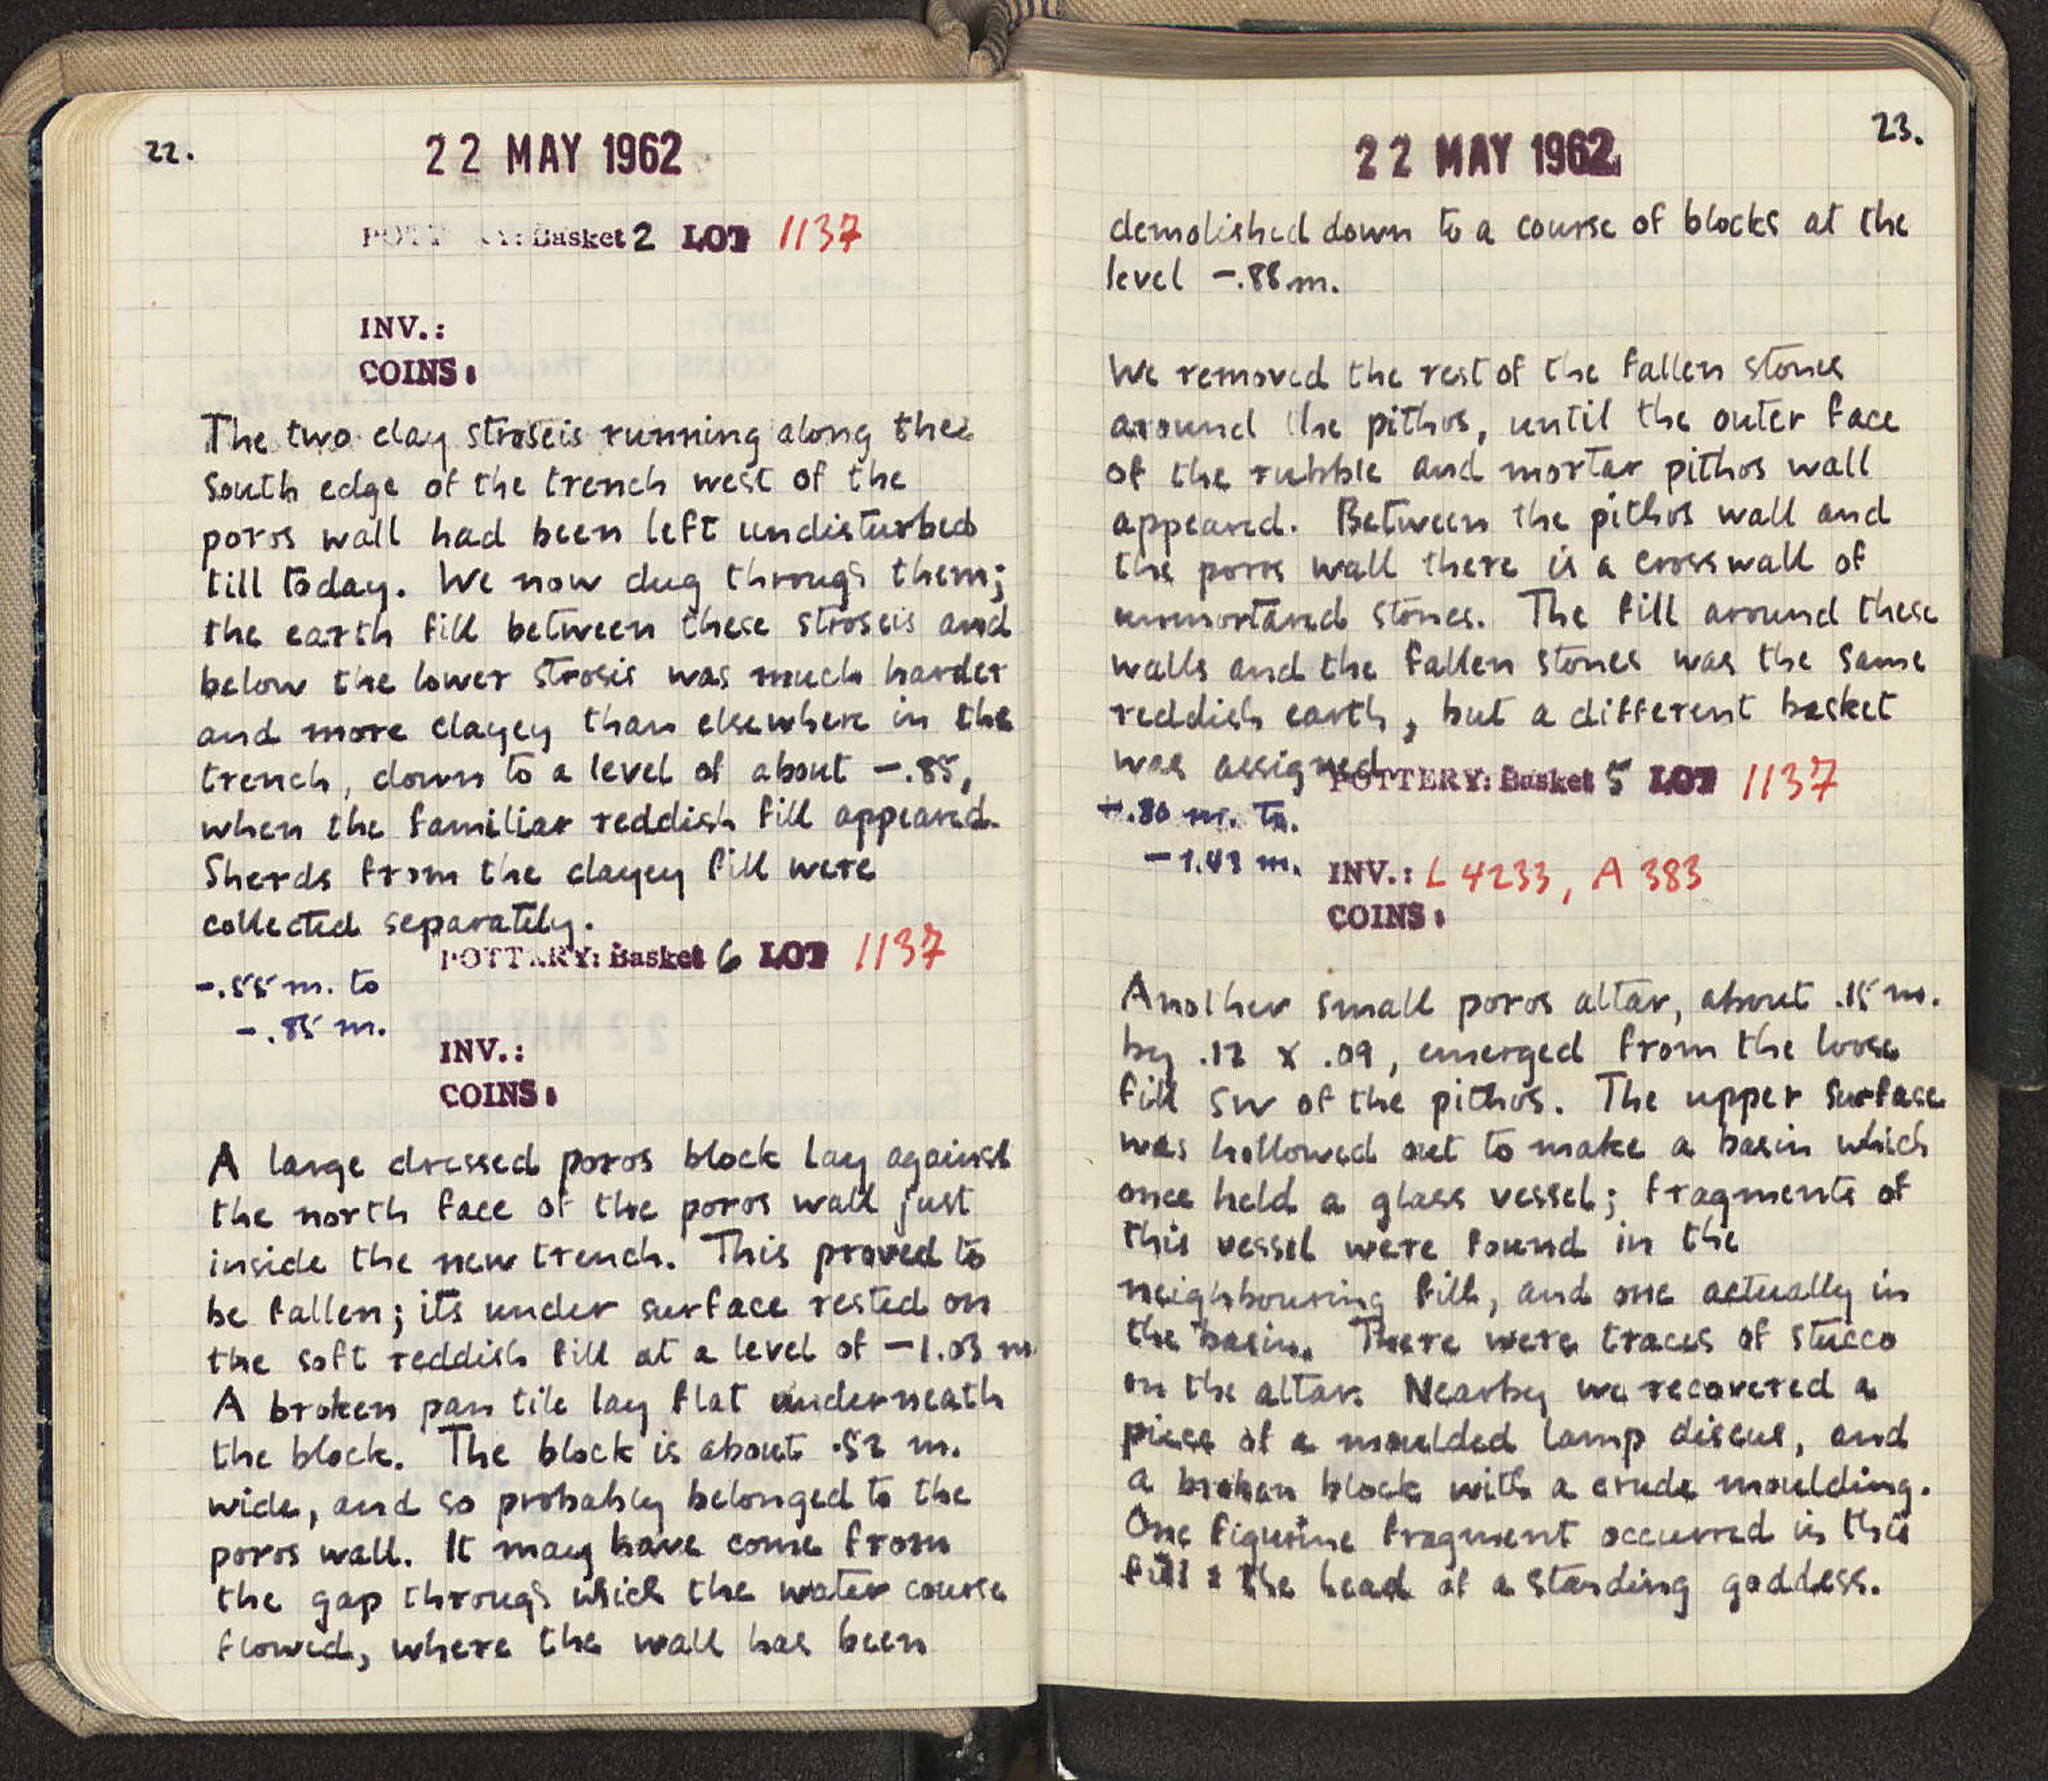 22.
22 MAY 1962
POTTERY: Basket 2 LOT 1137
INV.:
COINS:
The two clay stroseis running along the
South edge of the trench west of the
poros wall had been left undisturbed
till today. We now dug through them;
the earth fill between these stroseis and
below the lower strosis was much harder
and more clayey than elsewhere in the
trench, down to a level of about -.85,
when the familiar reddish fill appeared.
Sherds from the clayey fill were
collected separately.
POTTERY: Basket 6 LOT 1137
-.55 m. to
-.85 m.
INV.:
COINS:
A large dressed poros block lay against
the north face of the poros wall just
inside the new trench. This proved to
be fallen; its under surface rested on
the soft reddish fill at a level of -1.03 m
A broken pan tile lay flat underneath
the block. The block is about .52 m.
wide, and so probably belonged to the
poros wall. It may have come from
the gap through which the water course
flowed, where the wall has been
23.
22 MAY 1962
demolished down to a course of blocks at the
level -.88 m.
We removed the rest of the fallen stones
around the pithos, until the outer face
of the rubble and mortar pithos wall
appeared. Between the pithos wall and
the poros wall there is a crosswall of
unmortared stones. The fill around these
walls and the fallen stones was the same
reddish earth, but a different basket
was assigned
POTTERY: Basket 5 LOT 1137
-.80 m. to
-1.43 m.
INV.: L 4233, A 383
COINS:
Another small poros altar, about .15 m.
by .12 x .09, emerged from the loose
fill SW of the pithos. The upper surface
was hollowed out to make a basin which
once held a glass vessel; fragments of
this vessel were found in the
neighbouring fill, and one actually in
the basin. There were traces of stucco
on the altar. Nearby we recovered a
piece of a moulded lamp discus, and
a broken block with a crude moulding.
One figurine fragment occurred in this
fill: the head of a standing goddess.